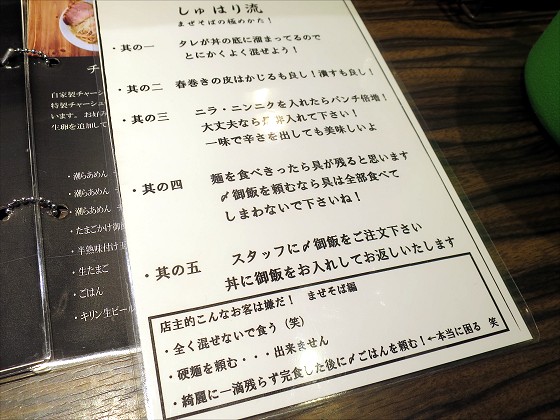 しゅはり流
まぜそばの極めかた！
・其の一 タレが丼の底に溜まってるので
とにかくよく混ぜよう！
・其の二 春巻きの皮はかじるも良し！潰すも良し！
・其の三 ニラ・ニンニクを入れたらパンチ倍増！
大丈夫なら是非入れて下さい！
一味で辛さを出しても美味しいよ
・其の四 麺を食べきったら具が残ると思います
〆御飯を頼むなら具は全部食べて
しまわないで下さいね！
・其の五 スタッフに〆御飯をご注文下さい
丼に御飯をお入れしてお返しいたします
店主的こんなお客は嫌だ！ まぜそば編
・全く混ぜないで食う（笑）
・硬麺を頼む・・・出来ません
・綺麗に一滴残らず完食した後に〆ごはんを頼む！←本当に困る 笑
チ
自家製チャーシュ
特製チャーシュー
います。お好み
生卵を追加して
・潮らあめん
・潮らあめん
・潮らあめん
・たまごかけ御飯
・半熟味付け玉
・生たまご
・ごはん
・キリン生ビール